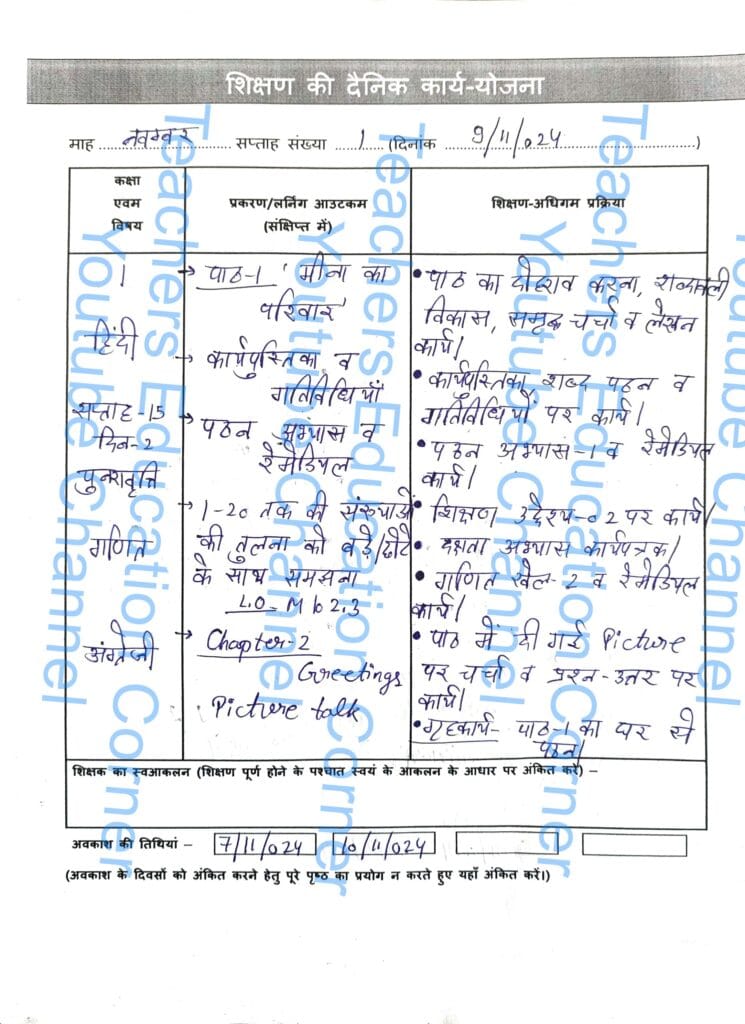 शिक्षण की दैनिक कार्य-योजना
माह नवम्बर सप्ताह संख्या 1 (दिनांक 9/11/024)
कक्षा एवम विषय
प्रकरण/लर्निंग आउटकम (संक्षिप्त में)
शिक्षण-अधिगम प्रक्रिया
1
हिंदी
सप्ताह-15
दिन-2
पुनरावृत्ति
→ पाठ-1 'मीना का
परिवार'
→ कार्यपुस्तिका व
गतिविधियाँ
→ पठन अभ्यास व
रेमेडियल
• पाठ का दोहराव करना, शब्दावली
विकास, समृद्ध चर्चा व लेखन
कार्य।
• कार्यपुस्तिका, शब्द पठन व
गतिविधियों पर कार्य।
• पठन अभ्यास-1 व रेमेडियल
कार्य।
गणित
→ 1-20 तक की संख्याओं
की तुलना को बड़े/छोटे
के साथ समझना
L.O - M 102.3
• शिक्षण उद्देश्य-02 पर कार्य।
• दक्षता अभ्यास कार्यपत्रक।
• गणित खेल-2 व रेमेडियल
कार्य।
अंग्रेजी
→ Chapter-2
Greetings
Picture talk
• पाठ में दी गई Picture
पर चर्चा व प्रश्न-उत्तर पर
कार्य।
• गृहकार्य- पाठ-1 का घर से
पठन।
शिक्षक का स्वआकलन (शिक्षण पूर्ण होने के पश्चात स्वयं के आकलन के आधार पर अंकित करें) –
अवकाश की तिथियां – 7/11/024 10/11/024
(अवकाश के दिवसों को अंकित करने हेतु पूरे पृष्ठ का प्रयोग न करते हुए यहाँ अंकित करें।)
Teachers Education Corner
Youtube Channel
Teachers Education Corner
Youtube Channel
Teachers Education Corner
Youtube Channel